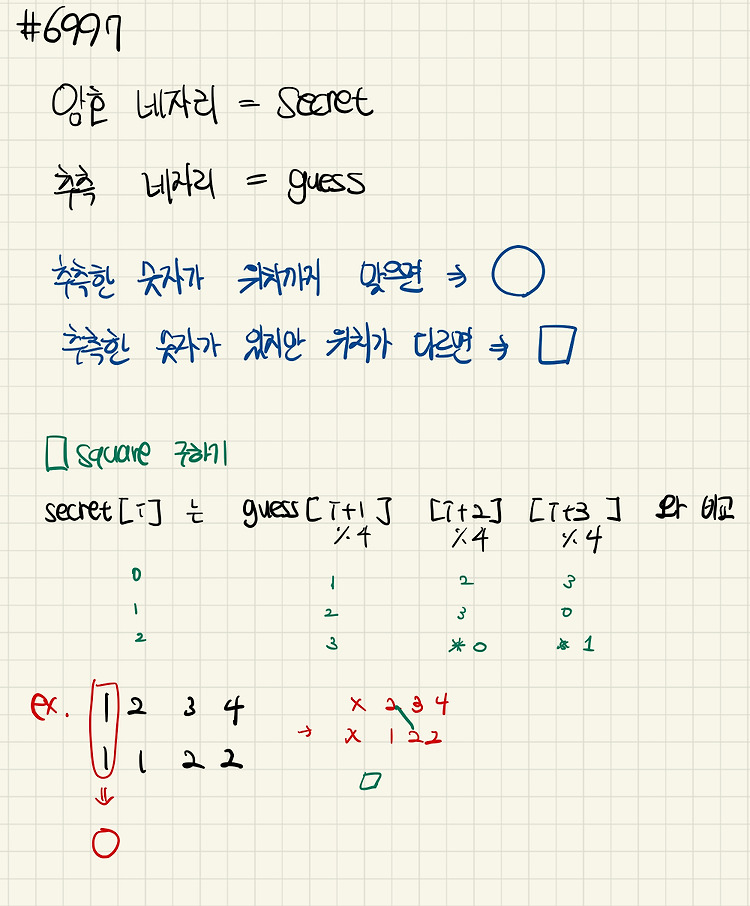 #6997
암호 네자리 = Secret
추측 네자리 = guess
추측한 숫자가 위치까지 맞으면 ⇒ ○
추측한 숫자가 있지만 위치가 다르면 ⇒ □
□ square 구하기
secret[i] 는 guess[i+1] [i+2] [i+3] 와 비교
%4 %4 %4
0 1 2 3
1 2 3 0
2 3 *0 *1
ex. 1 2 3 4 x 2 3 4
1 1 2 2 → x 1 2 2
⇓ □
○